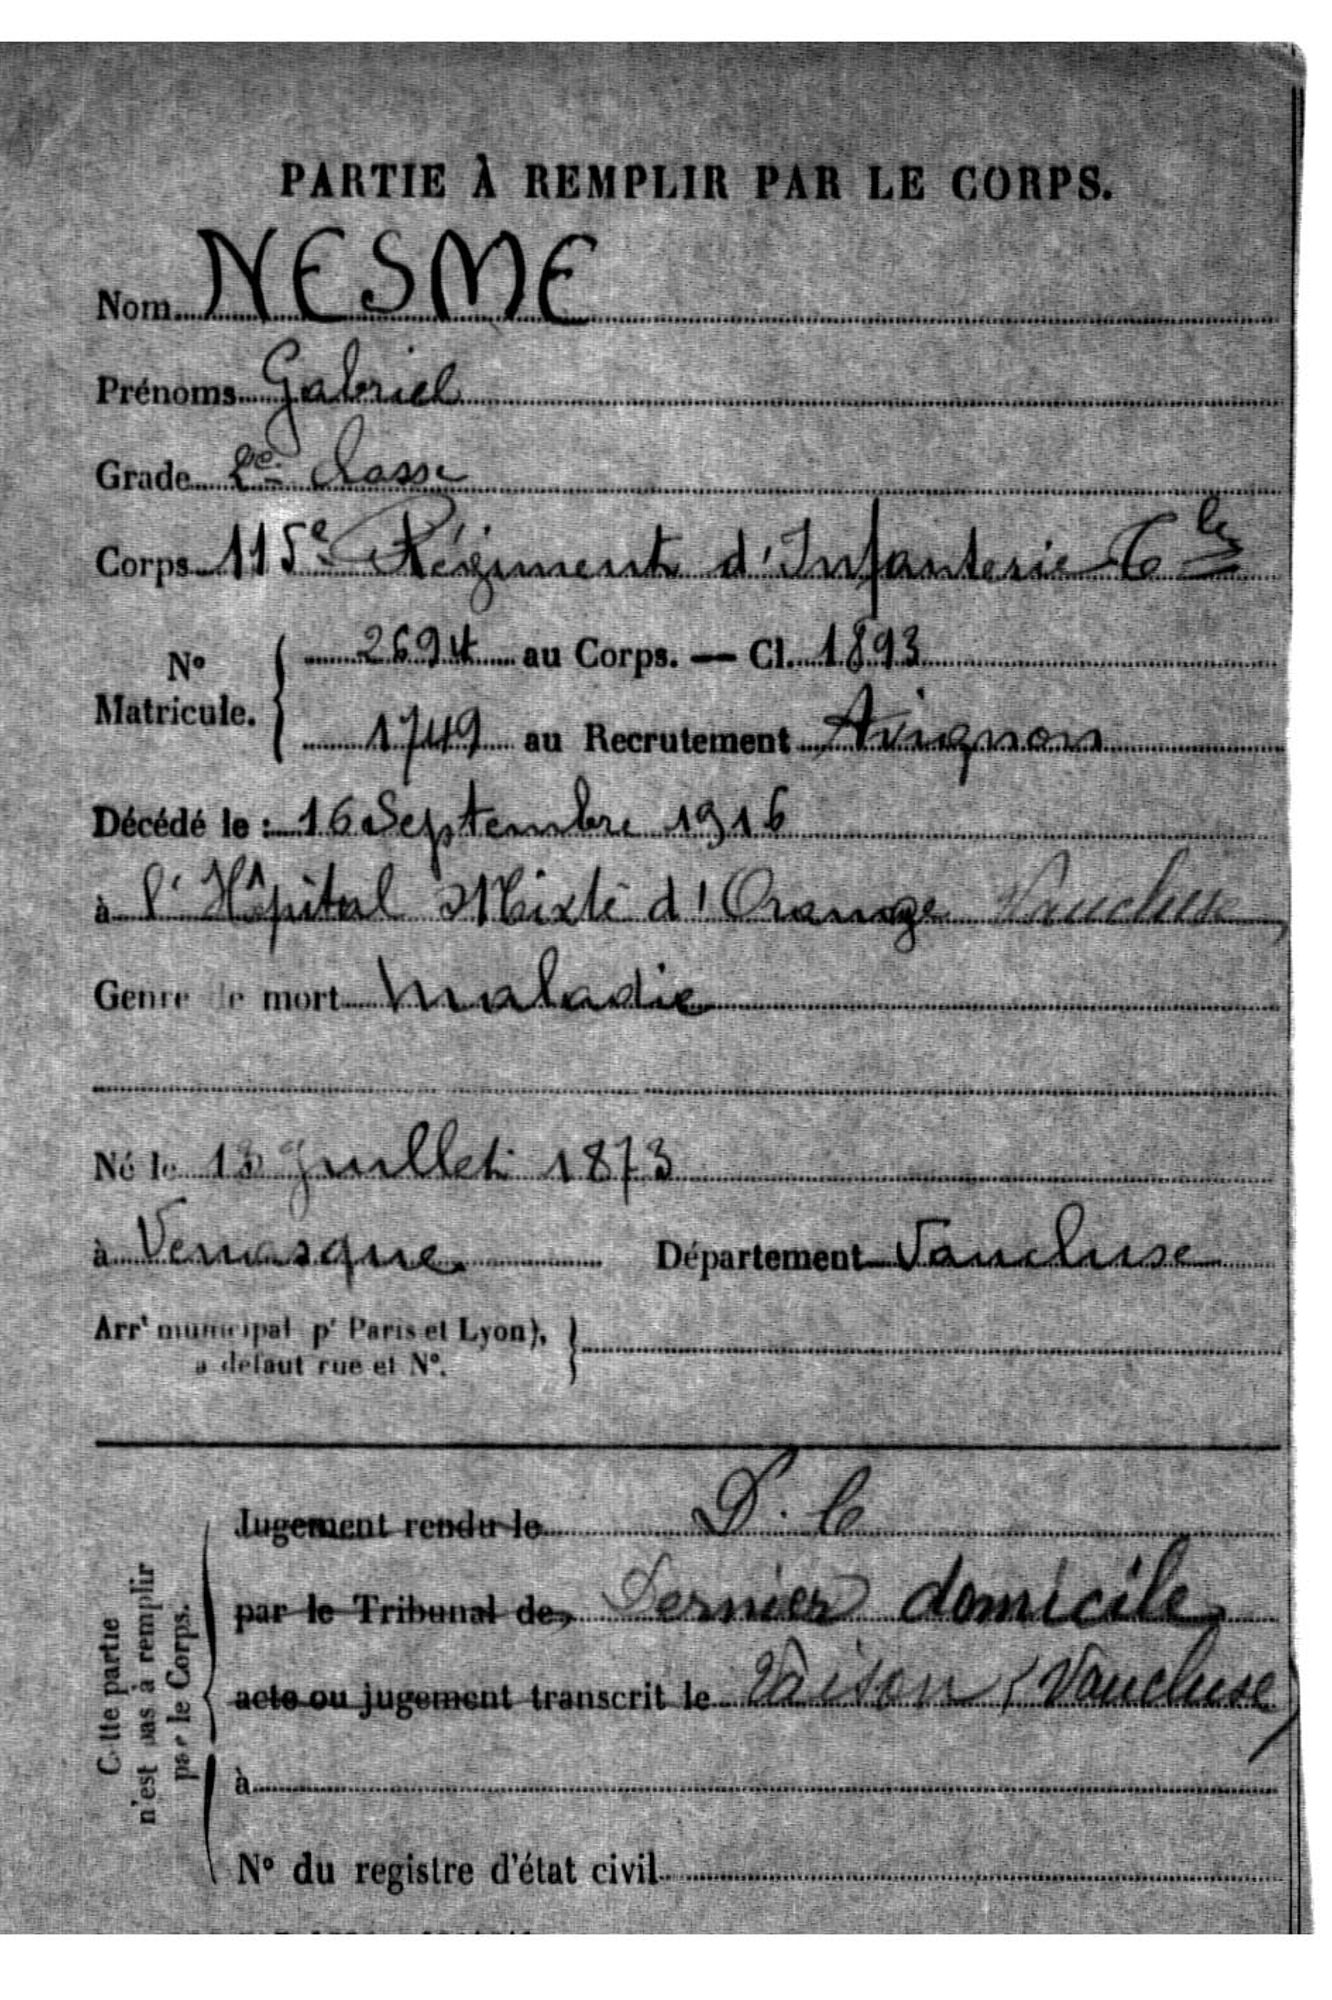 PARTIE À REMPLIR PAR LE CORPS.
Nom NESME
Prénoms Gabriel
Grade 2e classe
Corps 115e Régiment d'Infanterie Tle
N° Matricule. 2694 au Corps. — Cl. 1893
1749 au Recrutement Avignon
Décédé le : 16 Septembre 1916
à l'Hôpital Mixte d'Orange Vaucluse
Genre de mort Maladie
Né le Juillet 1873
à Venasque Département Vaucluse
Arrt municipal pr Paris et Lyon),
à défaut rue et N°.
Cette partie
n'est pas à remplir
par le Corps.
Jugement rendu le D. C
par le Tribunal de, Dernier domicile
acte ou jugement transcrit le Vaison (Vaucluse)
à
N° du registre d'état civil